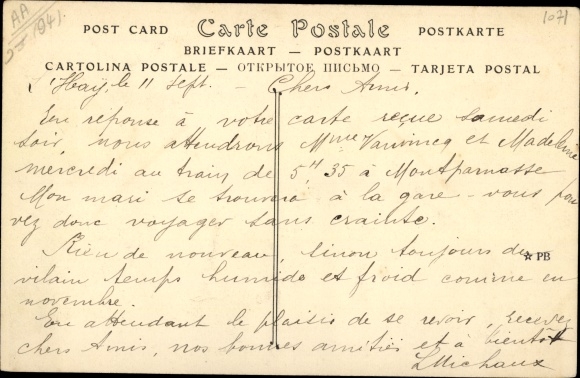 AA
1941.
1071
POST CARD Carte Postale POSTKARTE
BRIEFKAART — POSTKAART
CARTOLINA POSTALE — ОТКРЫТОЕ ПИСЬМО — TARJETA POSTAL
l'Haÿ, le 11 Sept. - Chers Amis,
En réponse à votre carte reçue samedi
soir, nous attendrons Mme Vanvincq et Madeleine
mercredi au train de 5H 35 à Montparnasse
Mon mari se trouvera à la gare - vous pou
vez donc voyager sans crainte.
Rien de nouveau, sinon toujours du
PB
vilain temps humide et froid comme en
novembre.
En attendant le plaisir de se revoir, recevez
chers Amis, nos bonnes amitiés et à bientôt
LMichaux